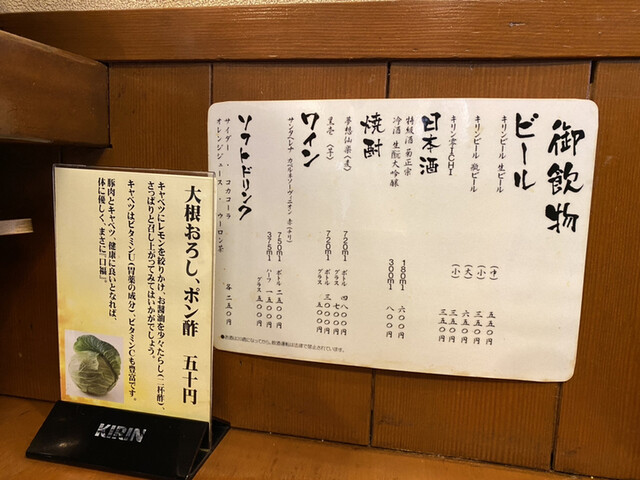 御飲物
ビール
キリンビール 生ビール (中) 五五〇円
キリンビール 瓶ビール (小) 三五〇円
(大) 六五〇円
キリン零ICHI (小) 三五〇円
日本酒
特級酒 菊正宗 180ml 六〇〇円
冷酒 生酛大吟醸 300ml 八〇〇円
焼酎
夢想仙楽(麦) 750ml ボトル 四八〇〇円
グラス 七〇〇円
黒壱(芋) 720ml ボトル 三〇〇〇円
グラス 五五〇円
ワイン
サンタヘレナ カベルネソーヴィニオン 赤(チリ) 750ml ボトル 二五〇〇円
375ml ハーフ 一五〇〇円
グラス 五〇〇円
ソフトドリンク
サイダー ・ コカコーラ
オレンジジュース ・ ウーロン茶 各 二五〇円
●飲酒は20歳になってから。飲酒運転は法律で禁止されています。
大根おろし、ポン酢 五十円
キャベツにレモンを絞りかけ、お醤油を少々たらし(二杯酢)、
さっぱりと召し上がってみてはいかがでしょう。
キャベツはビタミンU(胃薬の成分)、ビタミンCも豊富です。
豚肉とキャベツ、健康に良いとなれば、
体に優しく、まさに『口福』。
KIRIN